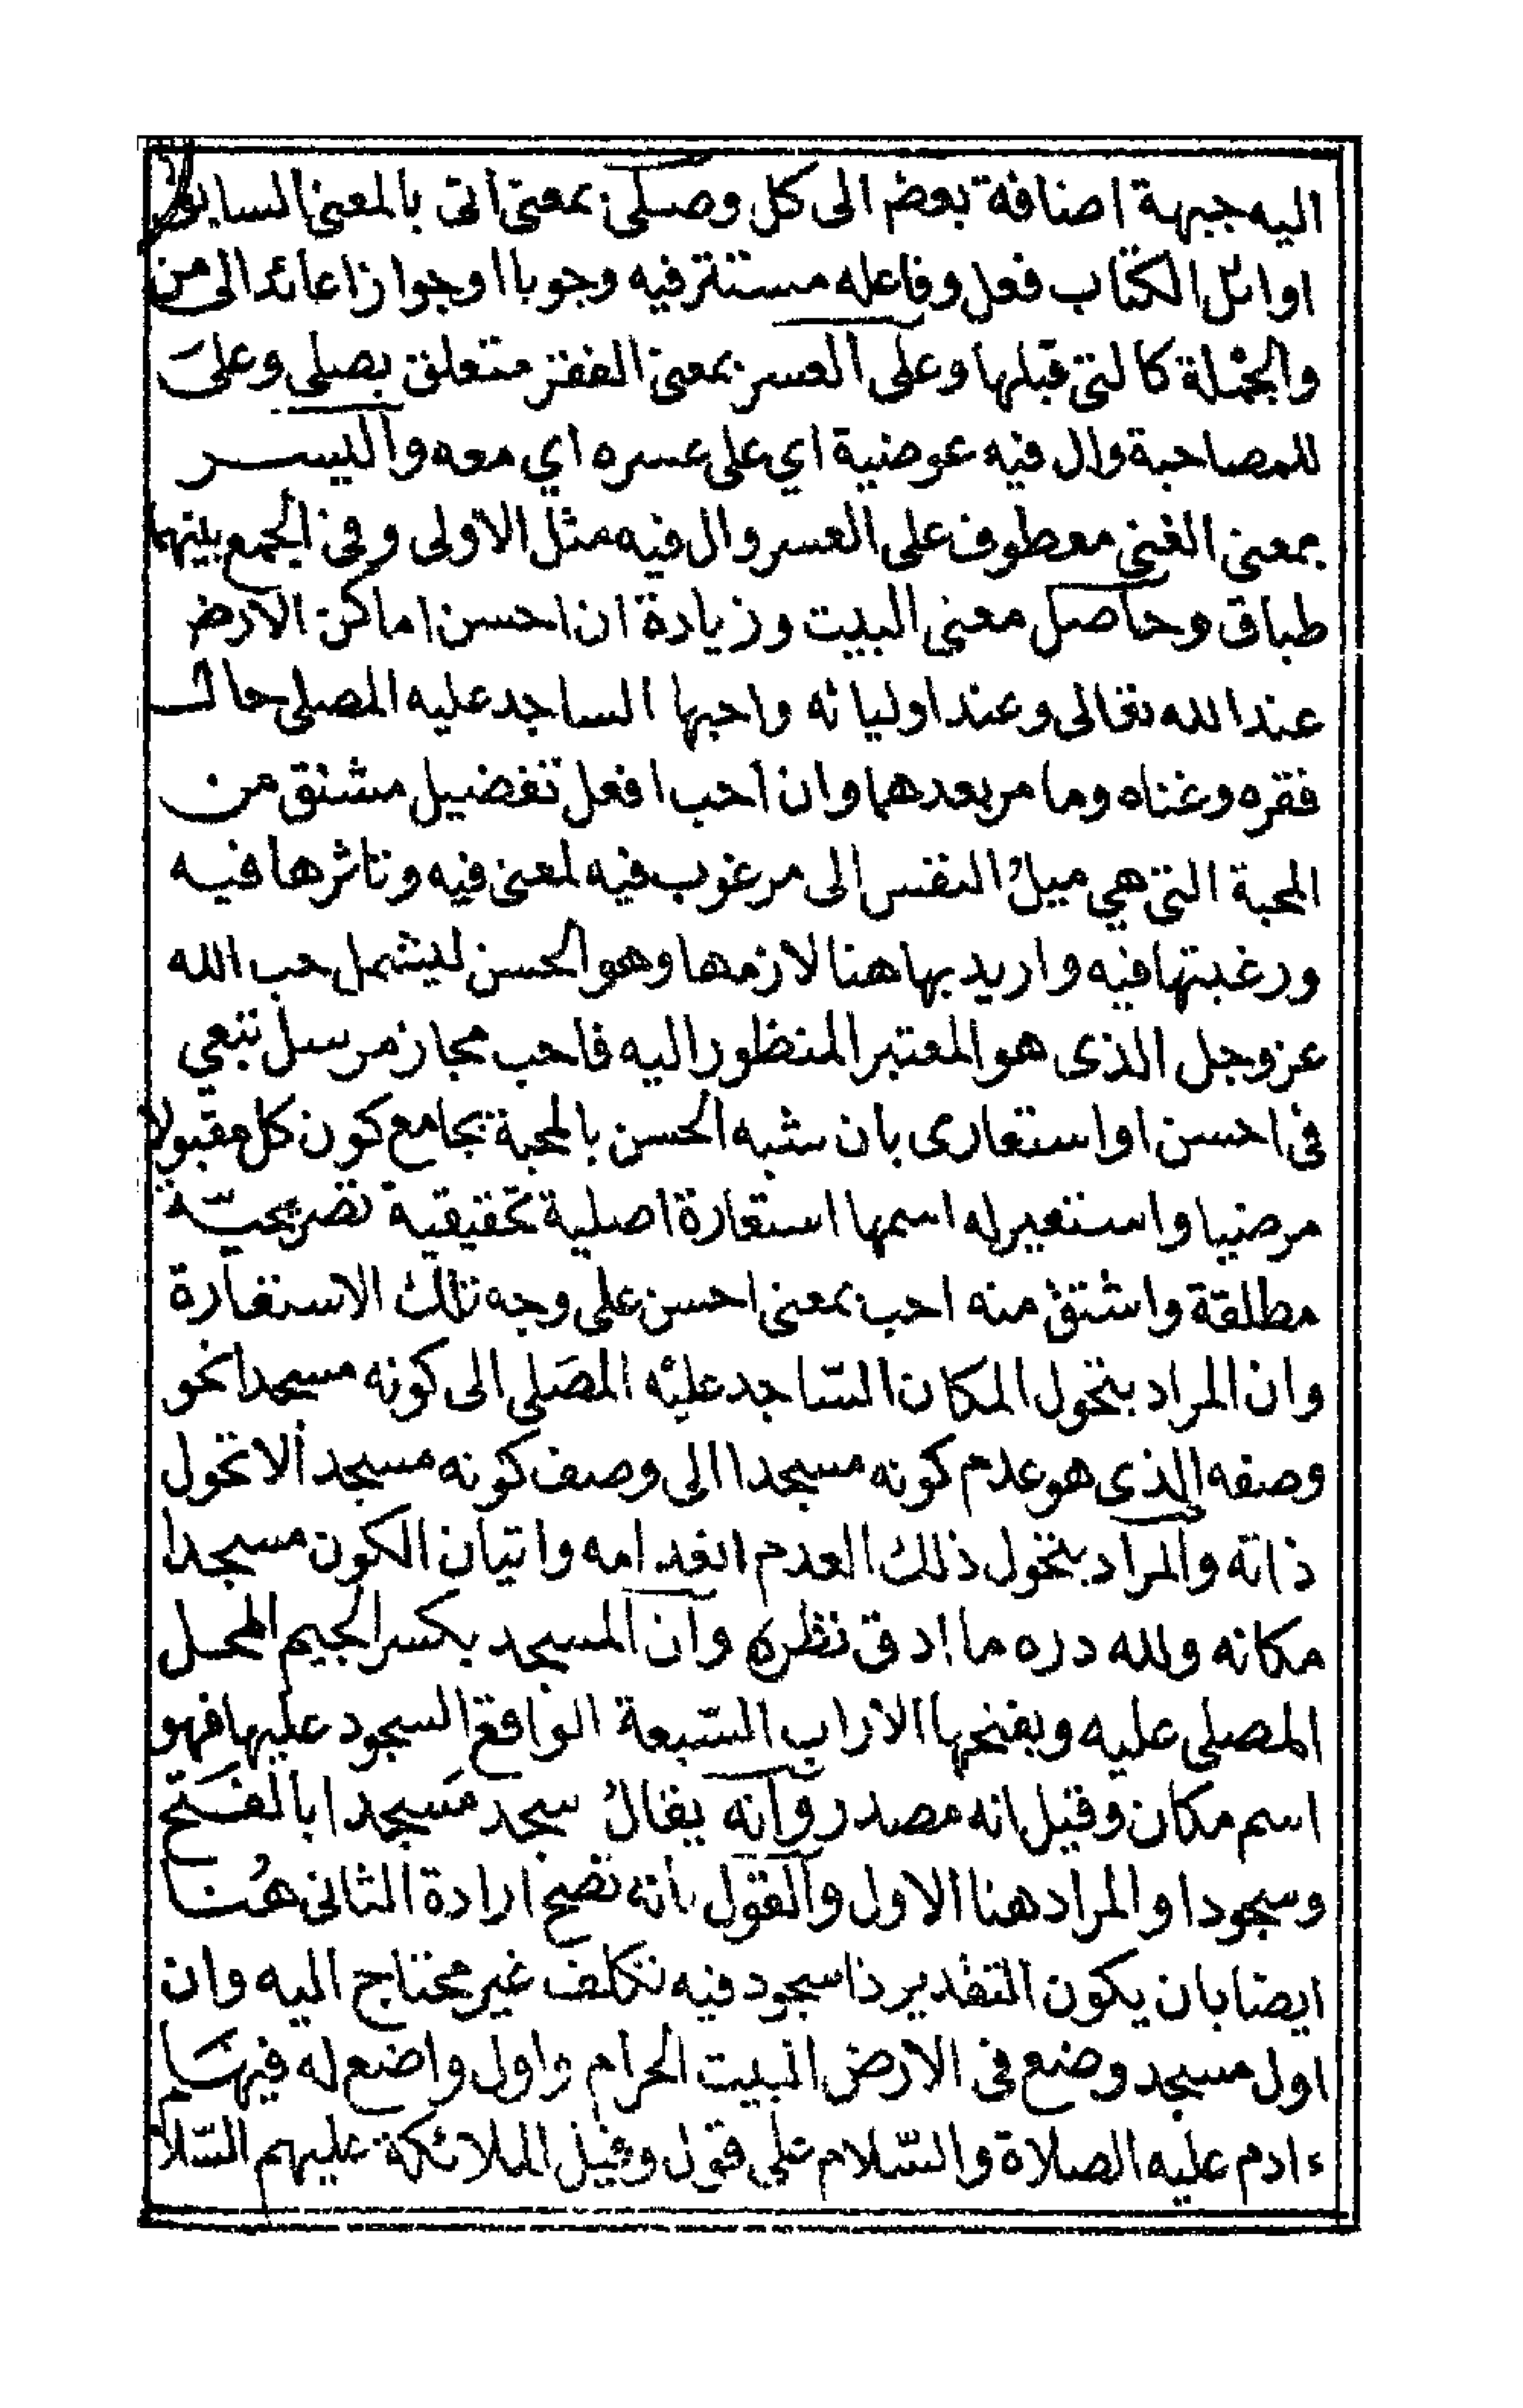 اليه جبهة اضافة بعض الى كل وصلى بمعنى اتى بالمعنى السابق
اوائل الكتاب فعل وفاعله مستتر فيه وجوبا او جوازا عائد الى من
والجملة كالتى قبلها وعلى العسر بمعنى الفقر متعلق بصلى وعلى
للمصاحبة وال فيه عوضية اي على عسره اي معه واليسر
بمعنى الغنى معطوف على العسر وال فيه مثل الاولى وفى الجمع بينهما
طباق وحاصل معنى البيت وزيادة ان احسن اماكن الارض
عند الله تعالى وعند اوليائه واحبها الساجد عليه المصلى حال
فقره وغناه وما مر بعدهما وان احب افعل تفضيل مشتق من
المحبة التى هي ميل النفس الى مرغوب فيه لمعنى فيه وتاثرها فيه
ورغبتها فيه واريد بها هنا لازمها وهو الحسن ليشمل حب الله
عز وجل الذى هو المعتبر المنظور اليه فاحب مجاز مرسل تبعي
فى احسن او استعارى بان شبه الحسن بالمحبة بجامع كون كل مقبولا
مرضيا واستعير له اسمها استعارة اصلية تحقيقية تصريحيّة
مطلقة واشتق منه احب بمعنى احسن على وجه تلك الاستعارة
وان المراد بتحول المكان السّاجد عليه المصَلى الى كونه مسجدا نحو
وصفه الذى هو عدم كونه مسجدا الى وصف كونه مسجدا لا تحول
ذاته والمراد بتحول ذلك العدم انعدامه واتيان الكون مسجدا
مكانه ولله دره ما ادق نظره وان المسجد بكسر الجيم المحل
المصلى عليه وبفتحها الاراب السّبعة الواقع السجود عليها فهو
اسم مكان وقيل انه مصدر وانه يقال سجد مَسجدا بالفَتح
وسجودا والمراد هنا الاول والقول بانه تصح ارادة الثانى هُنا
ايضا بان يكون التقدير ذا سجود فيه تكلف غير محتاج اليه وان
اول مسجد وضع فى الارض البيت الحرام واول واضع له فيهَا
ءادم عليه الصلاة والسّلام على قول وقيل الملائكة عليهم السّلام